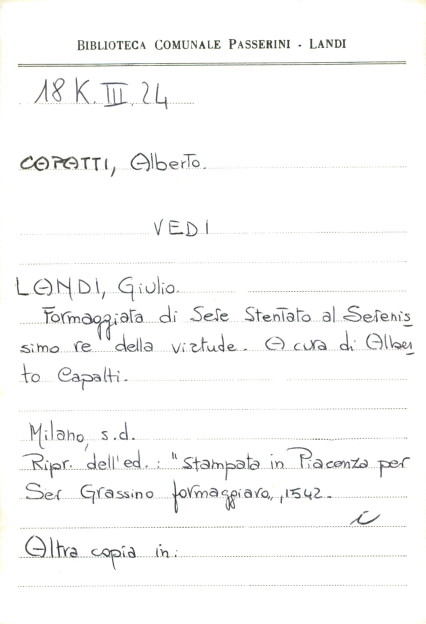 BIBLIOTECA COMUNALE PASSERINI - LANDI
18 K. III. 24
CAPATTI, Alberto.
VEDI
LANDI, Giulio.
Formaggiata di Sere Stentato al Serenis
simo re della virtude. A cura di Alber
to Capalti.
Milano, s.d.
Ripr. dell'ed.: "Stampata in Piacenza per
Ser Grassino formaggiaro,, ,1542.
i
Altra copia in: